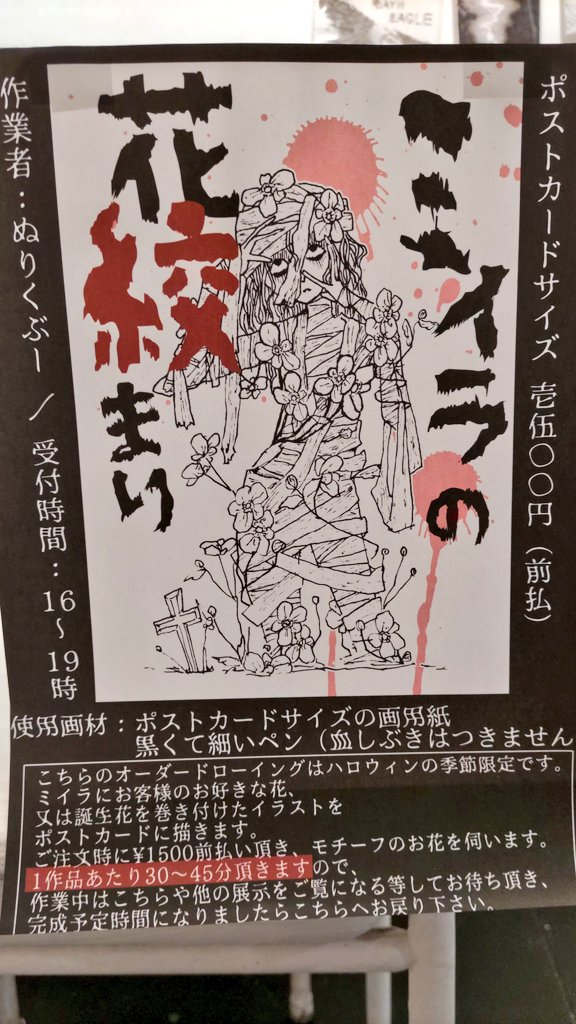 EAGLE
ミイラの
花絞まり
ポストカードサイズ 壱伍〇〇円（前払）
作業者：ぬりくぶー ／ 受付時間：16～19時
使用画材：ポストカードサイズの画用紙
黒くて細いペン（血しぶきはつきません
こちらのオーダードローイングはハロウィンの季節限定です。
ミイラにお客様のお好きな花、
又は誕生花を巻き付けたイラストを
ポストカードに描きます。
ご注文時に¥1500前払い頂き、モチーフのお花を伺います。
1作品あたり30～45分頂きますので、
作業中はこちらや他の展示をご覧になる等してお待ち頂き、
完成予定時間になりましたらこちらへお戻り下さい。